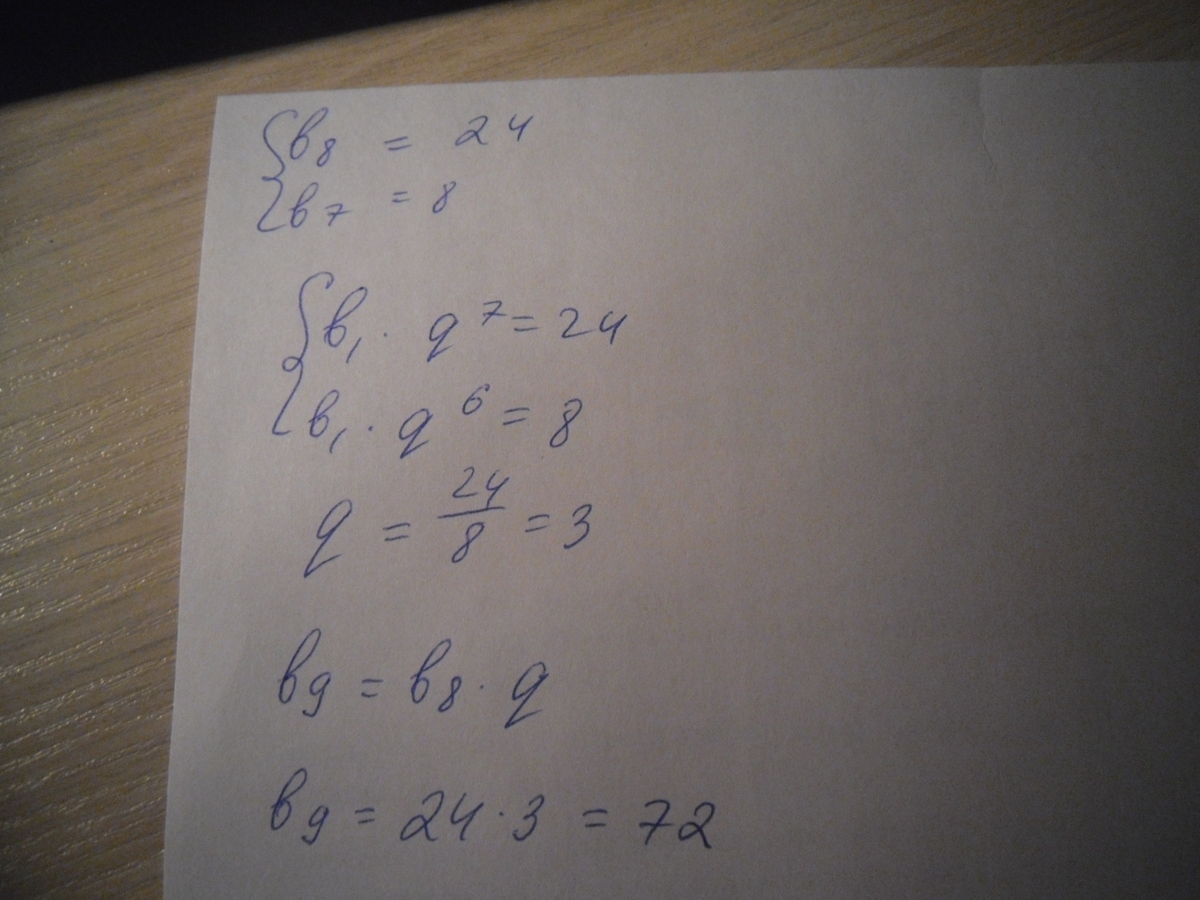 {b₈ = 24
{b₇ = 8
{b₁ · q⁷ = 24
{b₁ · q⁶ = 8
q = 24/8 = 3
b₉ = b₈ · q
b₉ = 24 · 3 = 72